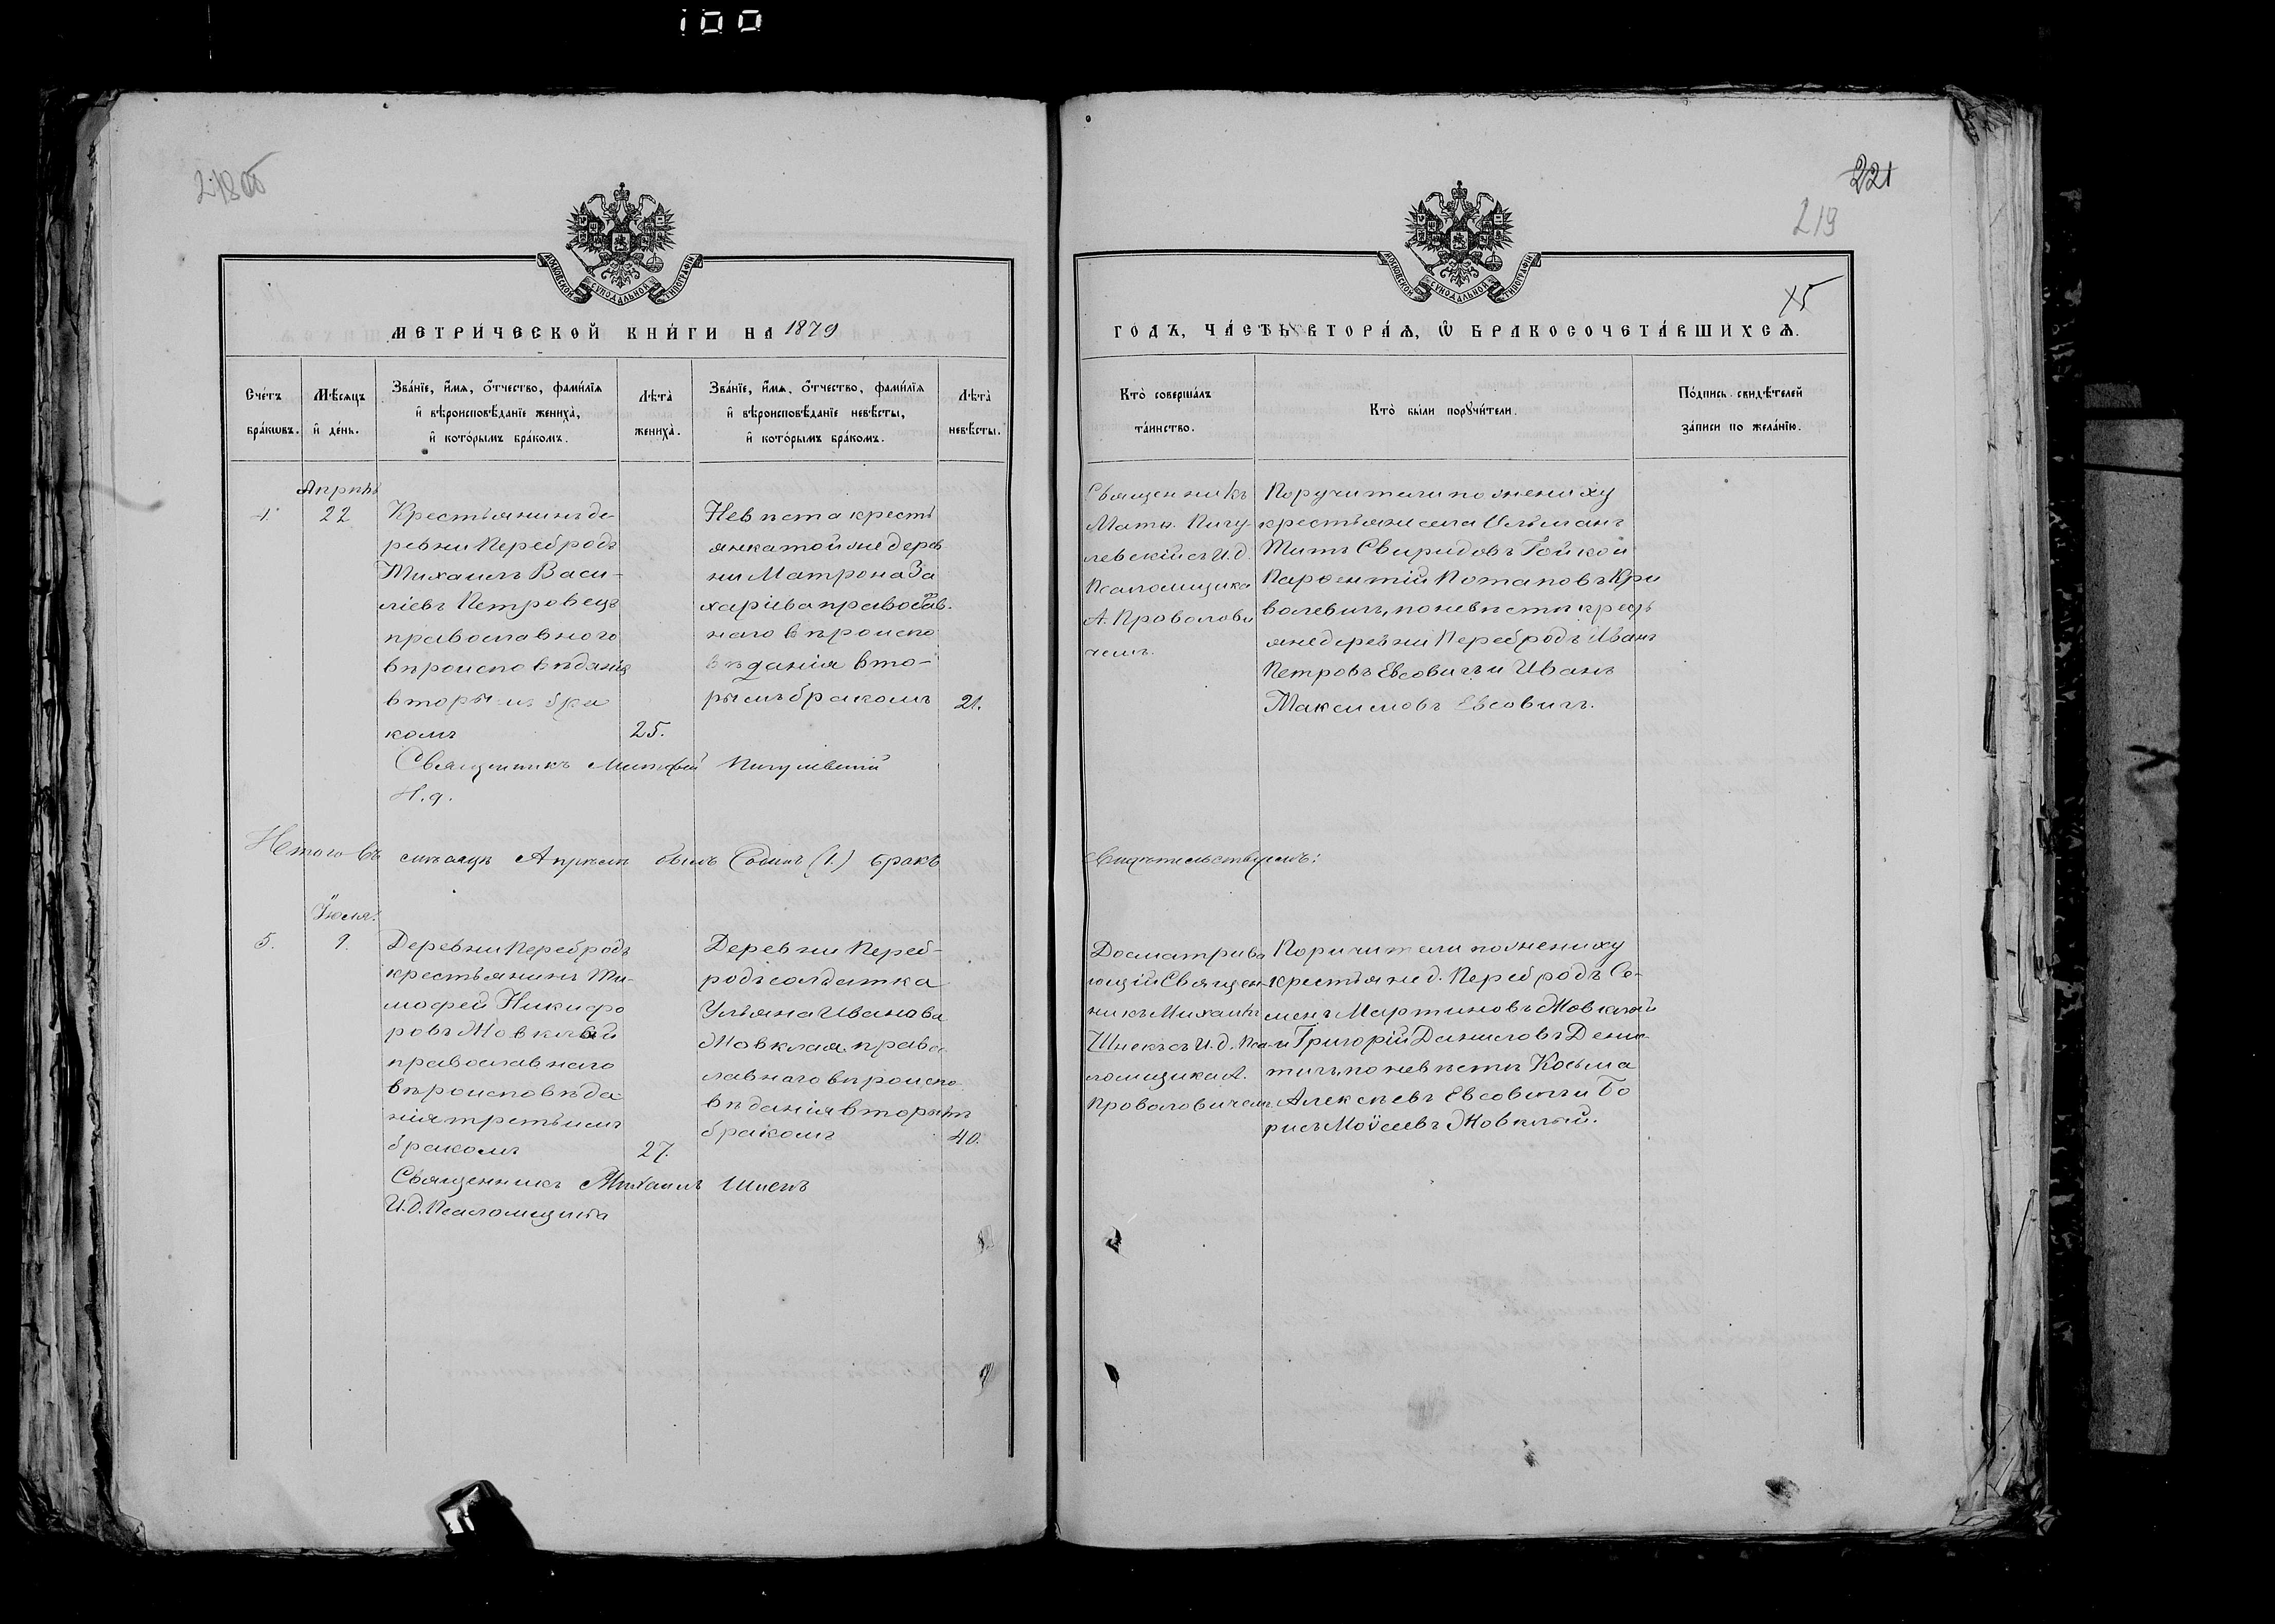 100
221
219
МОСКОВСКОЙ СѴНОДАЛЬНОЙ ТИПОГРАФІИ
МОСКОВСКОЙ СѴНОДАЛЬНОЙ ТИПОГРАФІИ
МЕТРИ́ЧЕСКОЙ КНИ́ГИ НА 1879
ГОДЪ, ЧА́СТЬ ВТОРА́Я, Ѡ БРАКОСОЧЕТА́ВШИХСЯ.
Сче́тъ бра́кѡвъ.
Мѣ́сяцъ и҆ де́нь.
Зва́нїе, и҆́мя, ѻ҆́тчество, фамѝлїя
и҆ вѣроисповѣ́данїе жениха̀,
и҆ кото́рымъ бра́комъ.
Лѣта̀ жениха̀.
Зва́нїе, и҆́мя, ѻ҆́тчество, фамѝлїя
и҆ вѣроисповѣ́данїе невѣ́сты,
и҆ кото́рымъ бра́комъ.
Лѣта̀ невѣ́сты.
Кто̀ соверша́лъ та́инство.
Кто̀ бы́ли порꙋчи́тели.
По́дпись свидѣ́телей за́писи по жела́нїю.
Апрѣль
4. 22
Крестьянинъ де-
ревни Перебродъ
Михаилъ Васи-
ліевъ Петровецъ
православного
вѣроисповѣданія
вторымъ бра
комъ
25.
Невѣста кресть
янка той же дерев
ни Матрона За
харіева правосла в.
наго вѣроиспо
вѣданія вто-
рымъ бракомъ
21.
Священникъ
Матѳ. Пигу-
левскій съ И.д.
Псаломщика
А. Проволови
чемъ.
Поручители по жениху
крестьяни села
Титъ Свиридовъ Гойкои
Парѳентій Потаповъ Кри
валевичъ, по невѣсты кресть
яне деревни Перебродъ Иванъ
Петровъ Евсовичъ и Иванъ
Максимовъ Евсовичъ.
Священникъ Матѳей Пигулевскій
И.д.
Итого въ мѣсяцѣ Апрѣлѣ былъ Одинъ (1.) бракъ
Свидѣтельствуемъ:
Іюля.
5. 9.
Деревни Перебродъ
крестьянинъ Ти-
мофей Никифо
ровъ Жовклый
православнаго
вѣроисповѣда
нія третьимъ
бракомъ
27.
Деревни Переб-
родъ солдатка
Ульяна Иванова
Жовклая право
славнаго вѣроиспо
вѣданія вторымъ
бракомъ
40.
Досматрива
ющій Священ-
никъ Михаилъ
Шнекъ съ И.д. Пса-
ломщика А.
Проволовичемъ
Поручители по жениху
крестьяне д. Перебродъ Се-
менъ Мартиновъ Жовклый
и Григорій Даниловъ Дени-
тичъ, по невѣсты Косьма
Алексѣевъ Евсовичъ и Бо
рисъ Моѵсеевъ Жовклый.
Священникъ Михаилъ Шнекъ
И.д. Псаломщика